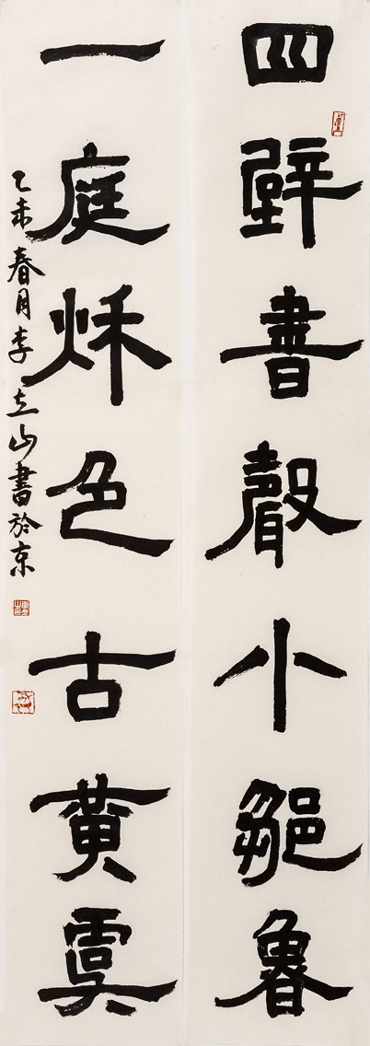 四壁書聲小鄒魯
一庭秌色古黄虞
乙未春月李立山書於京